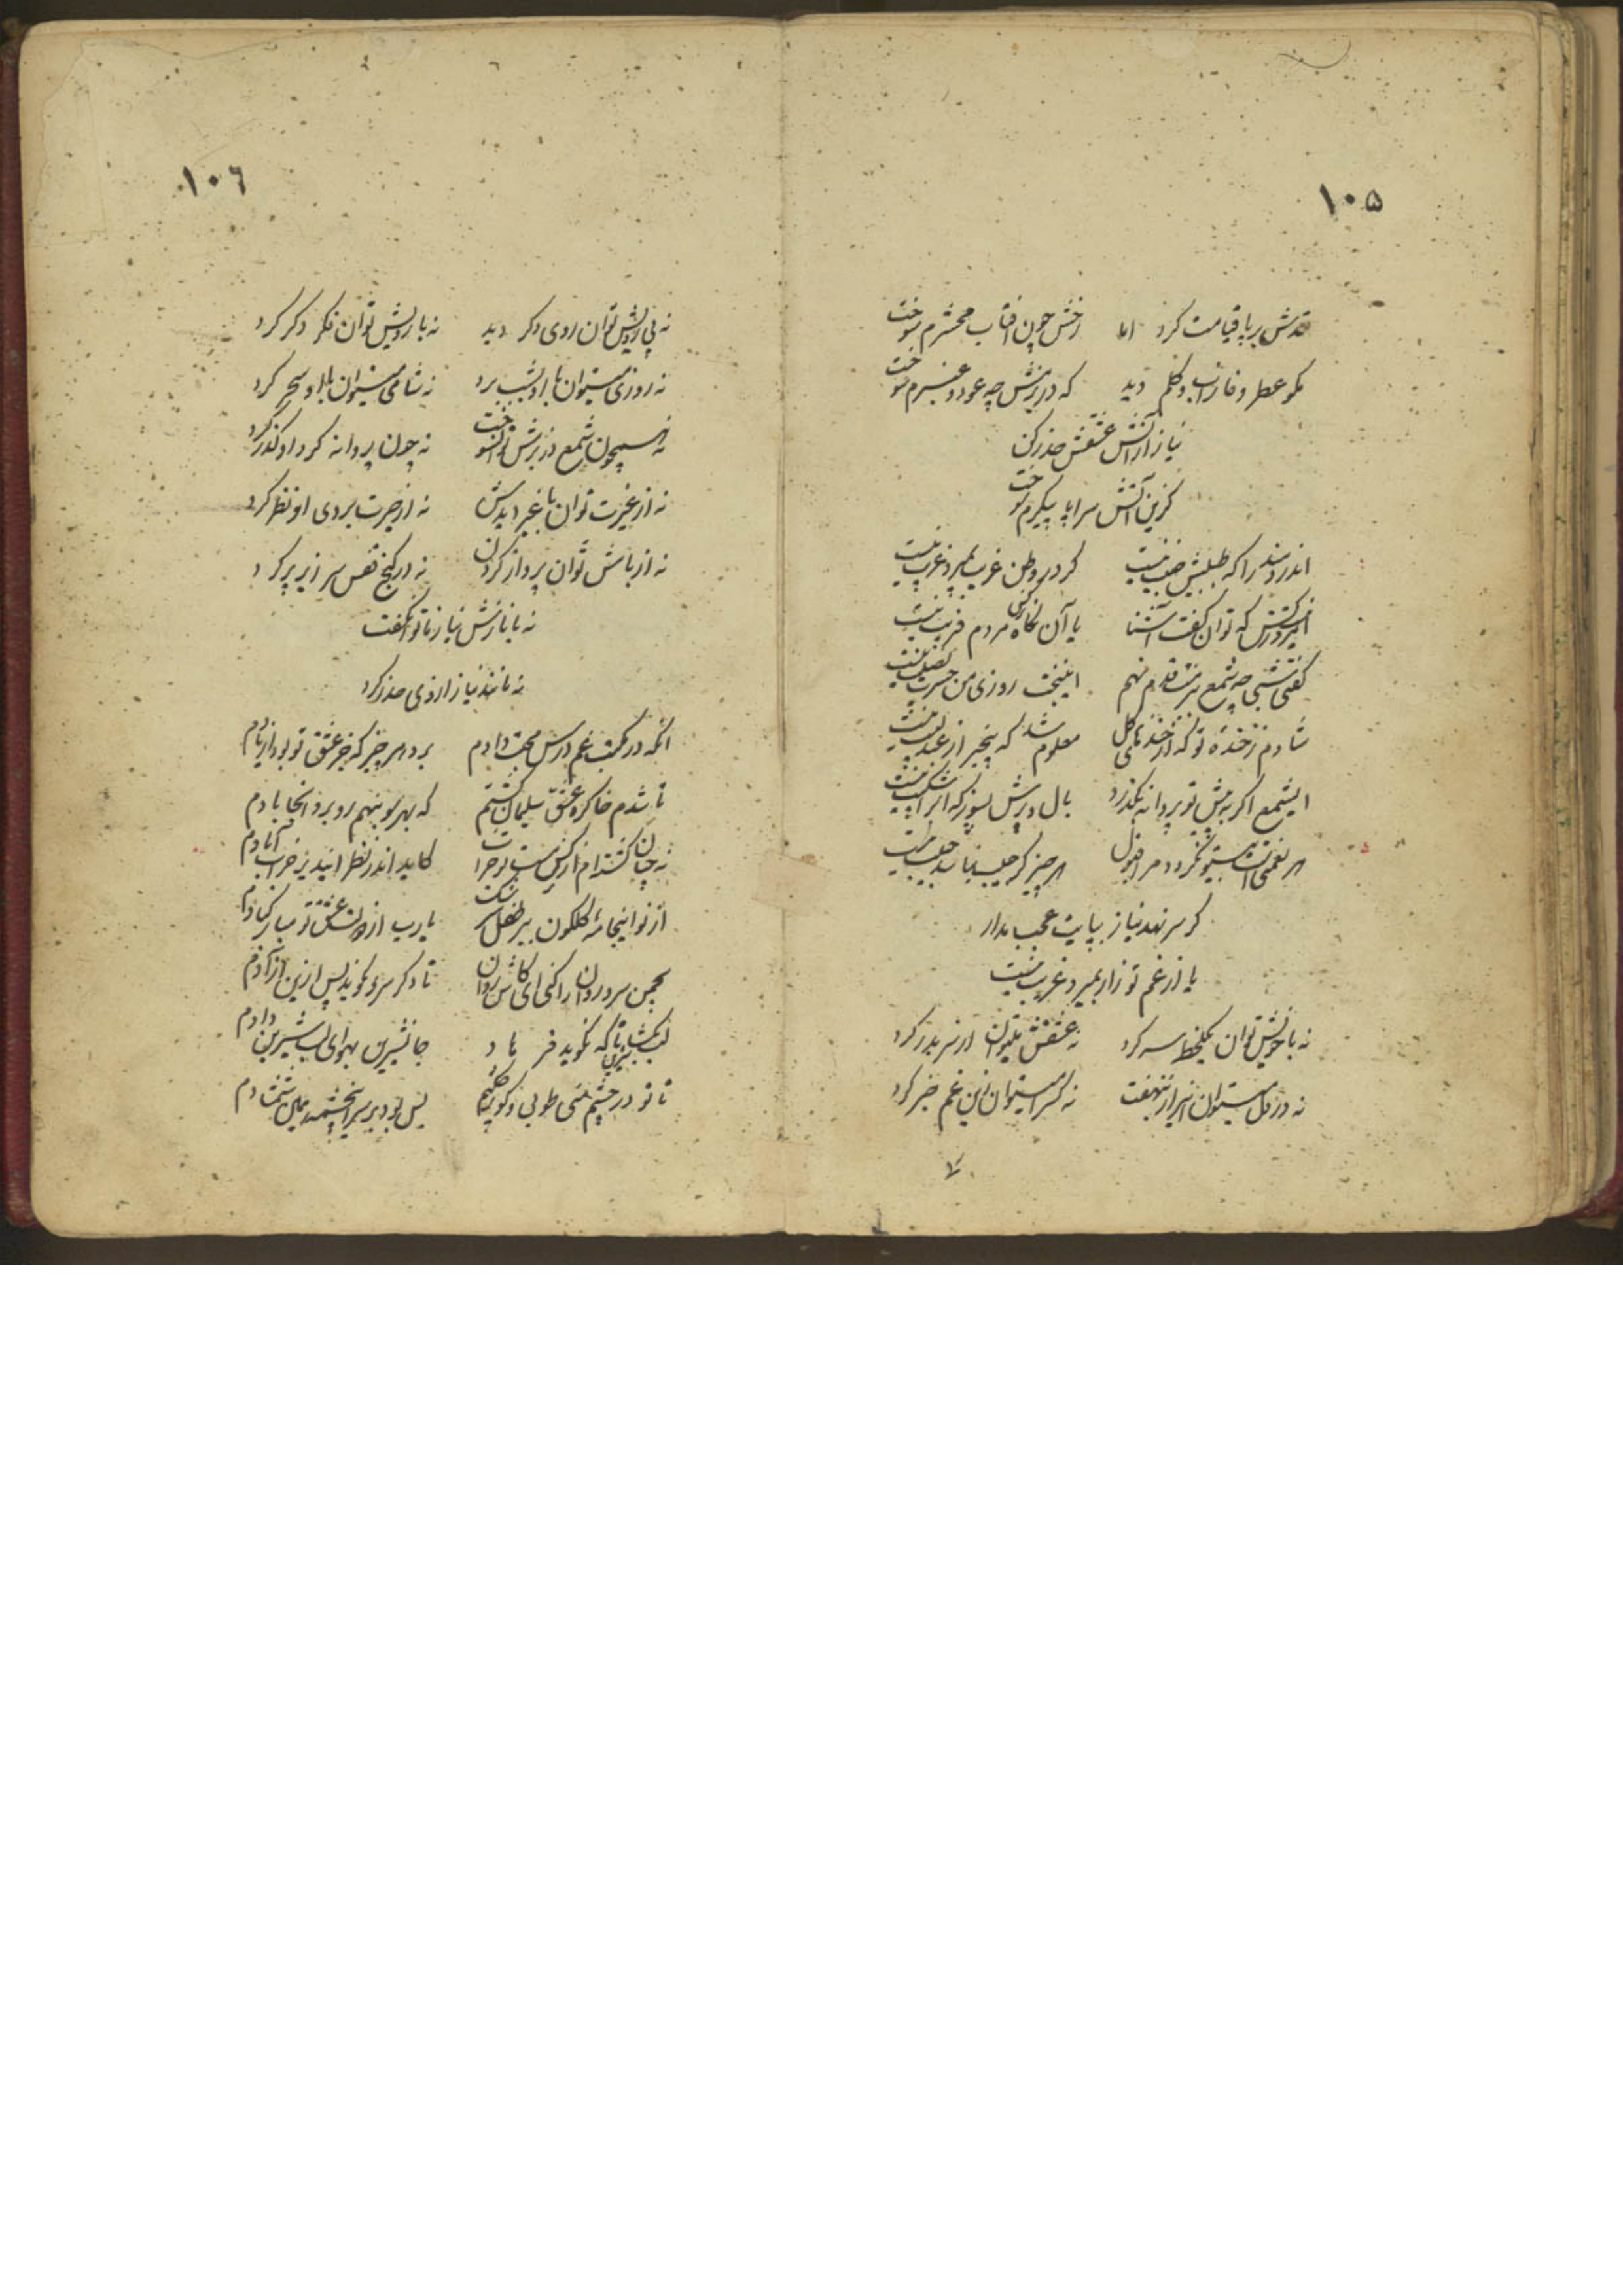 ۱۰۵
قدش برپا قیامت کرد اما رخش چون افتاب محشرم سوخت
مکو عطر و فا دید که در بزمش چو عود و عنبرم سوخت
نیاز از آتش عشقش حذر کن
کزین آتش سراپا پیکرم سوخت
اندردمند را که طبیبش حبیب نیست کر در وطن غریب بمیرد غریب نیست
که توان کفت آشنا یا آن نکاه مردم فریب نیست
کفتی شبی چه شمع قدم نهم اینبخت روزی من حسرت نصیب نیست
شادم زخنده تو که از خنده‌های کل معلوم شد که بیخبر از عندلیب نیست
ایشمع اکر به پیش تو پروانه نکذرد بال و پرش بسوز که شکیب نیست
هر نغمتی نکردد مرا قبول هر چیز کز حبیب نباید حبیب نیست
کر سر نهد نیاز بپایت عجب مدار
یا از غم تو زار بمیرد غریب نیست
نه با خویش توان یکلحظه سر کرد نه عشقش میتوان از سر بدر کرد
نه در دل میتوان این راز بنهفت نه کس را میتوان زین غم خبر کرد
۱۰۶
نه بی رویش توان روی دکر دید نه با رویش توان فکر دکر کرد
نه روزی میتوان با او بشب برد نه شامی میتوان با او سحر کرد
نه همچون شمع در بزمش توان سوخت نه چون پروانه کرد او کذر کرد
نه از غیرت توان با غیر دیدش نه از حیرت بروی او نظر کرد
نه از بامش توان پرواز کردن نه در کنج قفس سر زیر پر کرد
نه با نازش نیاز ما توان کفت
نه مانند نیاز از وی حذر کرد
انکه در مکتب غم درس محبت دادم برد هر چیز که جز عشق تو بود از یادم
تا شدم خاک ره عشق سلیمان کشتم که بهر سو بنهم رو برد آنجا بادم
نه چنان کشته‌ام از نرکس مست تو خراب کاید اندر نظر ایندیر خراب آبادم
از نو اینجامه کلکون طفل سرشک یارب از دولت عشق تو مبارکبادم
بچمن سرو روان را کنی ای کاش روان تا دکر سرو نکویند پس از این آزادم
لب تا که نکوید فرهاد جان شیرین بهوای لب شیرین دادم
تا تو در چشم منی طوبی و کوثر چکنم بس بود بر سر اینچشمه همین شمشادم